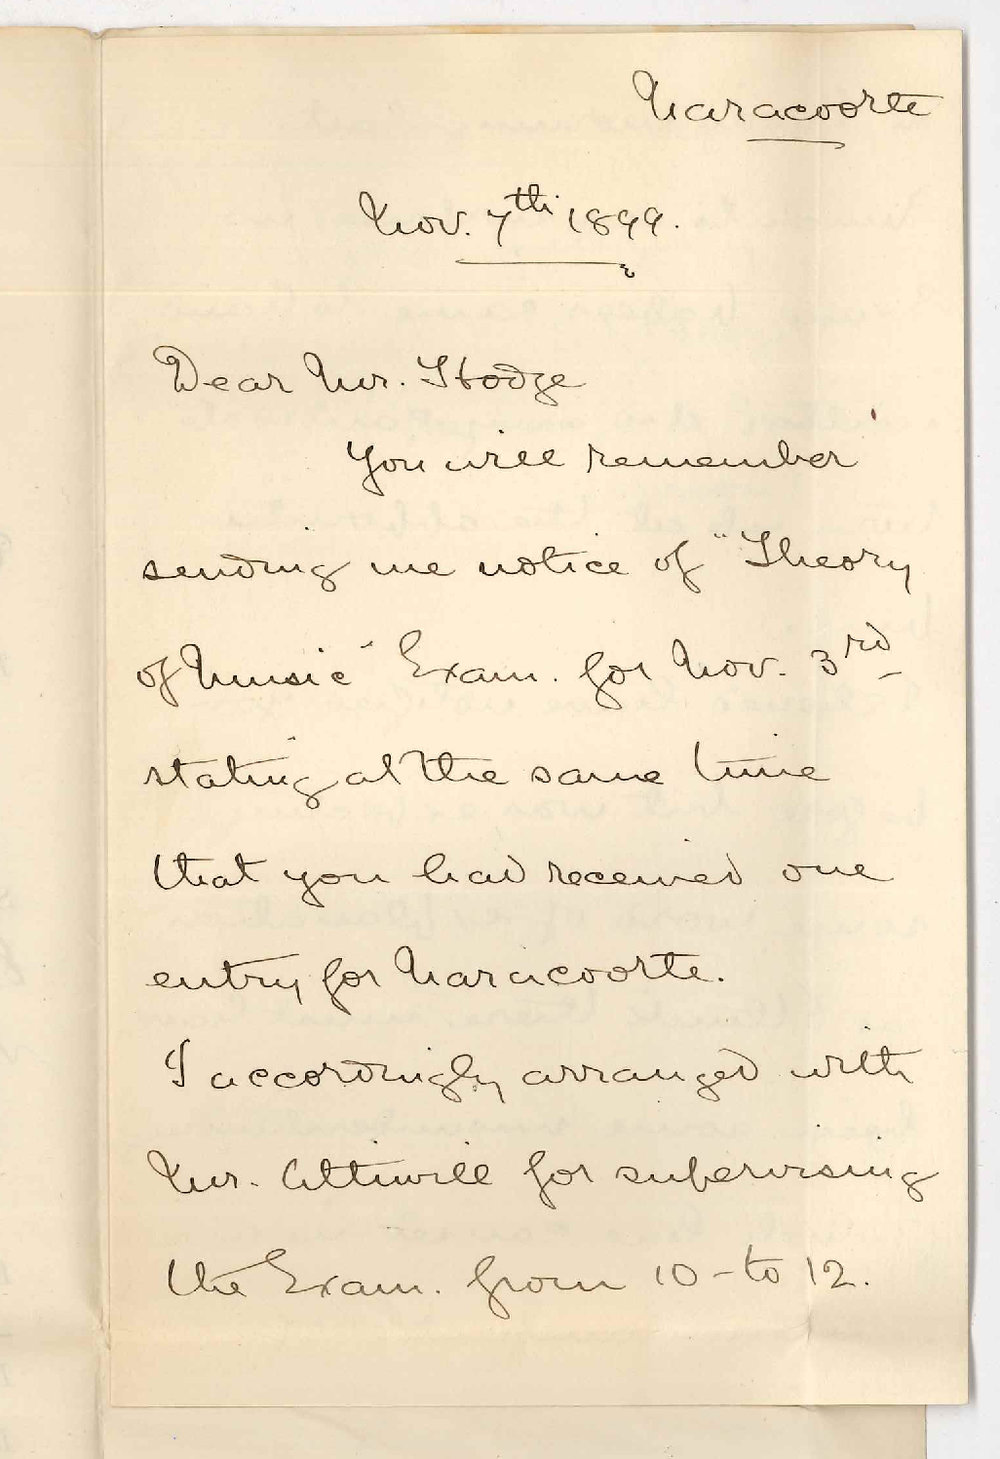 Naracoorte
Nov. 7th 1899.
Dear Mr. Hodge
You will remember
sending me notice of "Theory
of Music" Exam. for Nov. 3rd
stating at the same time
that you had received one
entry for Naracoorte.
I accordingly arranged with
Mr. Attiwill for supervising
the Exam. from 10 - to 12.